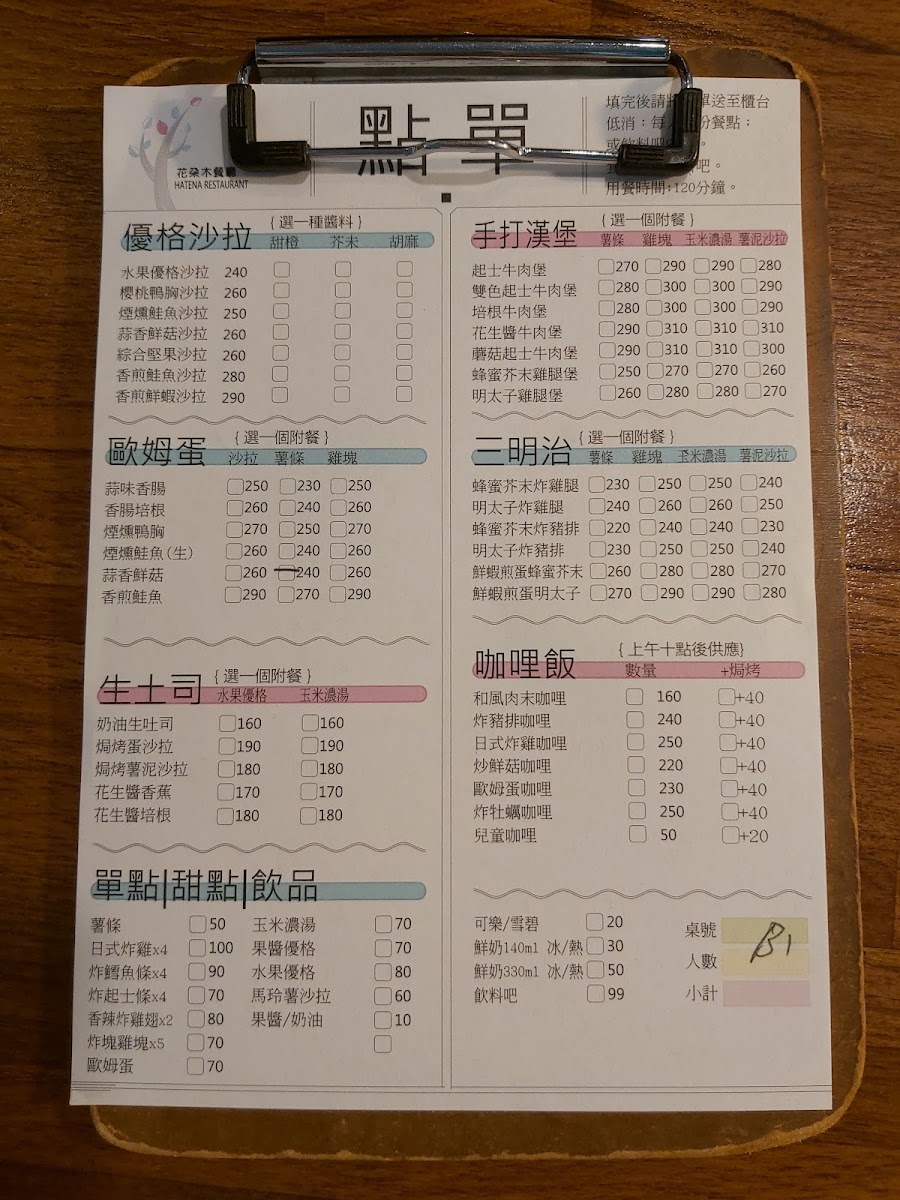 花朵木餐廳
HATENA RESTAURANT
點單
填完後請 單送至櫃台
低消：每 份餐點；
吧。
用餐時間：120分鐘。
優格沙拉 {選一種醬料}
甜橙 芥末 胡麻
水果優格沙拉 240
櫻桃鴨胸沙拉 260
煙燻鮭魚沙拉 250
蒜香鮮菇沙拉 260
綜合堅果沙拉 260
香煎鮭魚沙拉 280
香煎鮮蝦沙拉 290
歐姆蛋 {選一個附餐}
沙拉 薯條 雞塊
蒜味香腸 250 230 250
香腸培根 260 240 260
煙燻鴨胸 270 250 270
煙燻鮭魚(生) 260 240 260
蒜香鮮菇 260 240 260
香煎鮭魚 290 270 290
生土司 {選一個附餐}
水果優格 玉米濃湯
奶油生吐司 160 160
焗烤蛋沙拉 190 190
焗烤薯泥沙拉 180 180
花生醬香蕉 170 170
花生醬培根 180 180
單點|甜點|飲品
薯條 50 玉米濃湯 70
日式炸雞x4 100 果醬優格 70
炸鱈魚條x4 90 水果優格 80
炸起士條x4 70 馬玲薯沙拉 60
香辣炸雞翅x2 80 果醬/奶油 10
炸塊雞塊x5 70
歐姆蛋 70
手打漢堡 {選一個附餐}
薯條 雞塊 玉米濃湯 薯泥沙拉
起士牛肉堡 270 290 290 280
雙色起士牛肉堡 280 300 300 290
培根牛肉堡 280 300 300 290
花生醬牛肉堡 290 310 310 310
蘑菇起士牛肉堡 290 310 310 300
蜂蜜芥末雞腿堡 250 270 270 260
明太子雞腿堡 260 280 280 270
三明治 {選一個附餐}
薯條 雞塊 玉米濃湯 薯泥沙拉
蜂蜜芥末炸雞腿 230 250 250 240
明太子炸雞腿 240 260 260 250
蜂蜜芥末炸豬排 220 240 240 230
明太子炸豬排 230 250 250 240
鮮蝦煎蛋蜂蜜芥末 260 280 280 270
鮮蝦煎蛋明太子 270 290 290 280
咖哩飯 {上午十點後供應}
數量 +焗烤
和風肉末咖哩 160 +40
炸豬排咖哩 240 +40
日式炸雞咖哩 250 +40
炒鮮菇咖哩 220 +40
歐姆蛋咖哩 230 +40
炸牡蠣咖哩 250 +40
兒童咖哩 50 +20
可樂/雪碧 20
鮮奶140ml 冰/熱 30
鮮奶330ml 冰/熱 50
飲料吧 99
桌號 B1
人數
小計